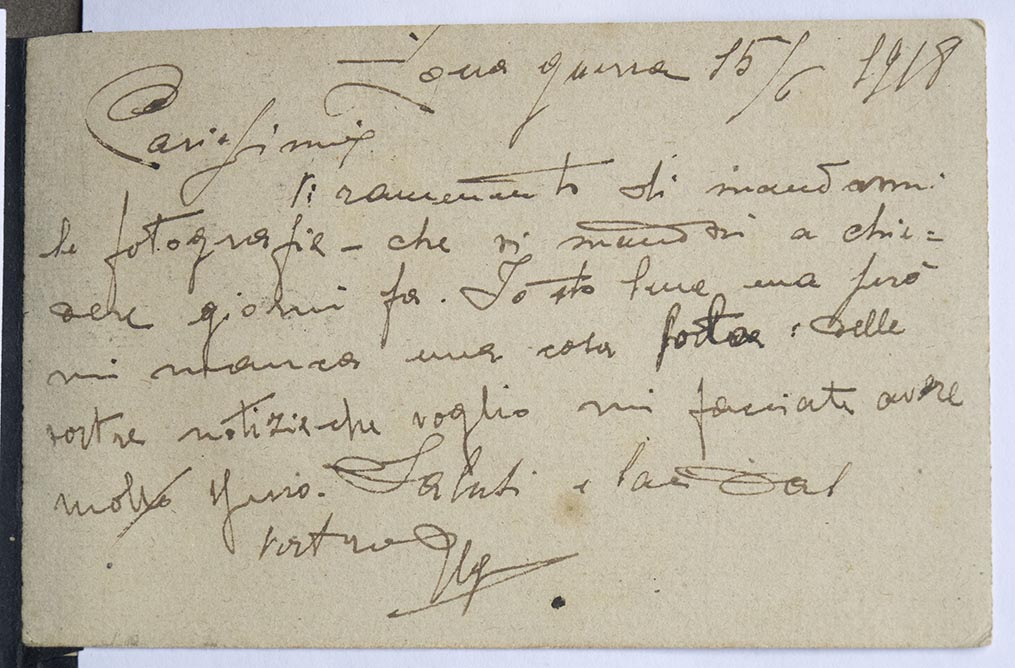 Zona guerra 15/6 1918
Carissimi
Vi rammento di mandarmi
le fotografie - che vi mandai a chie=
dere giorni fa. Io sto bene ma però
mi manca una cosa forte: delle
vostre notizie che voglio mi facciate avere
molto spesso. Saluti e baci dal
vostro